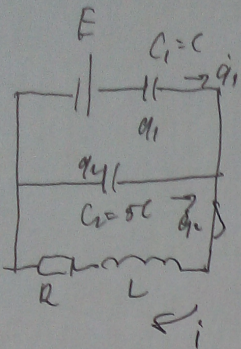 E
C₁=C
q̇₁
q₁
q₂
C₂=5C
q̇₂
R
L
i